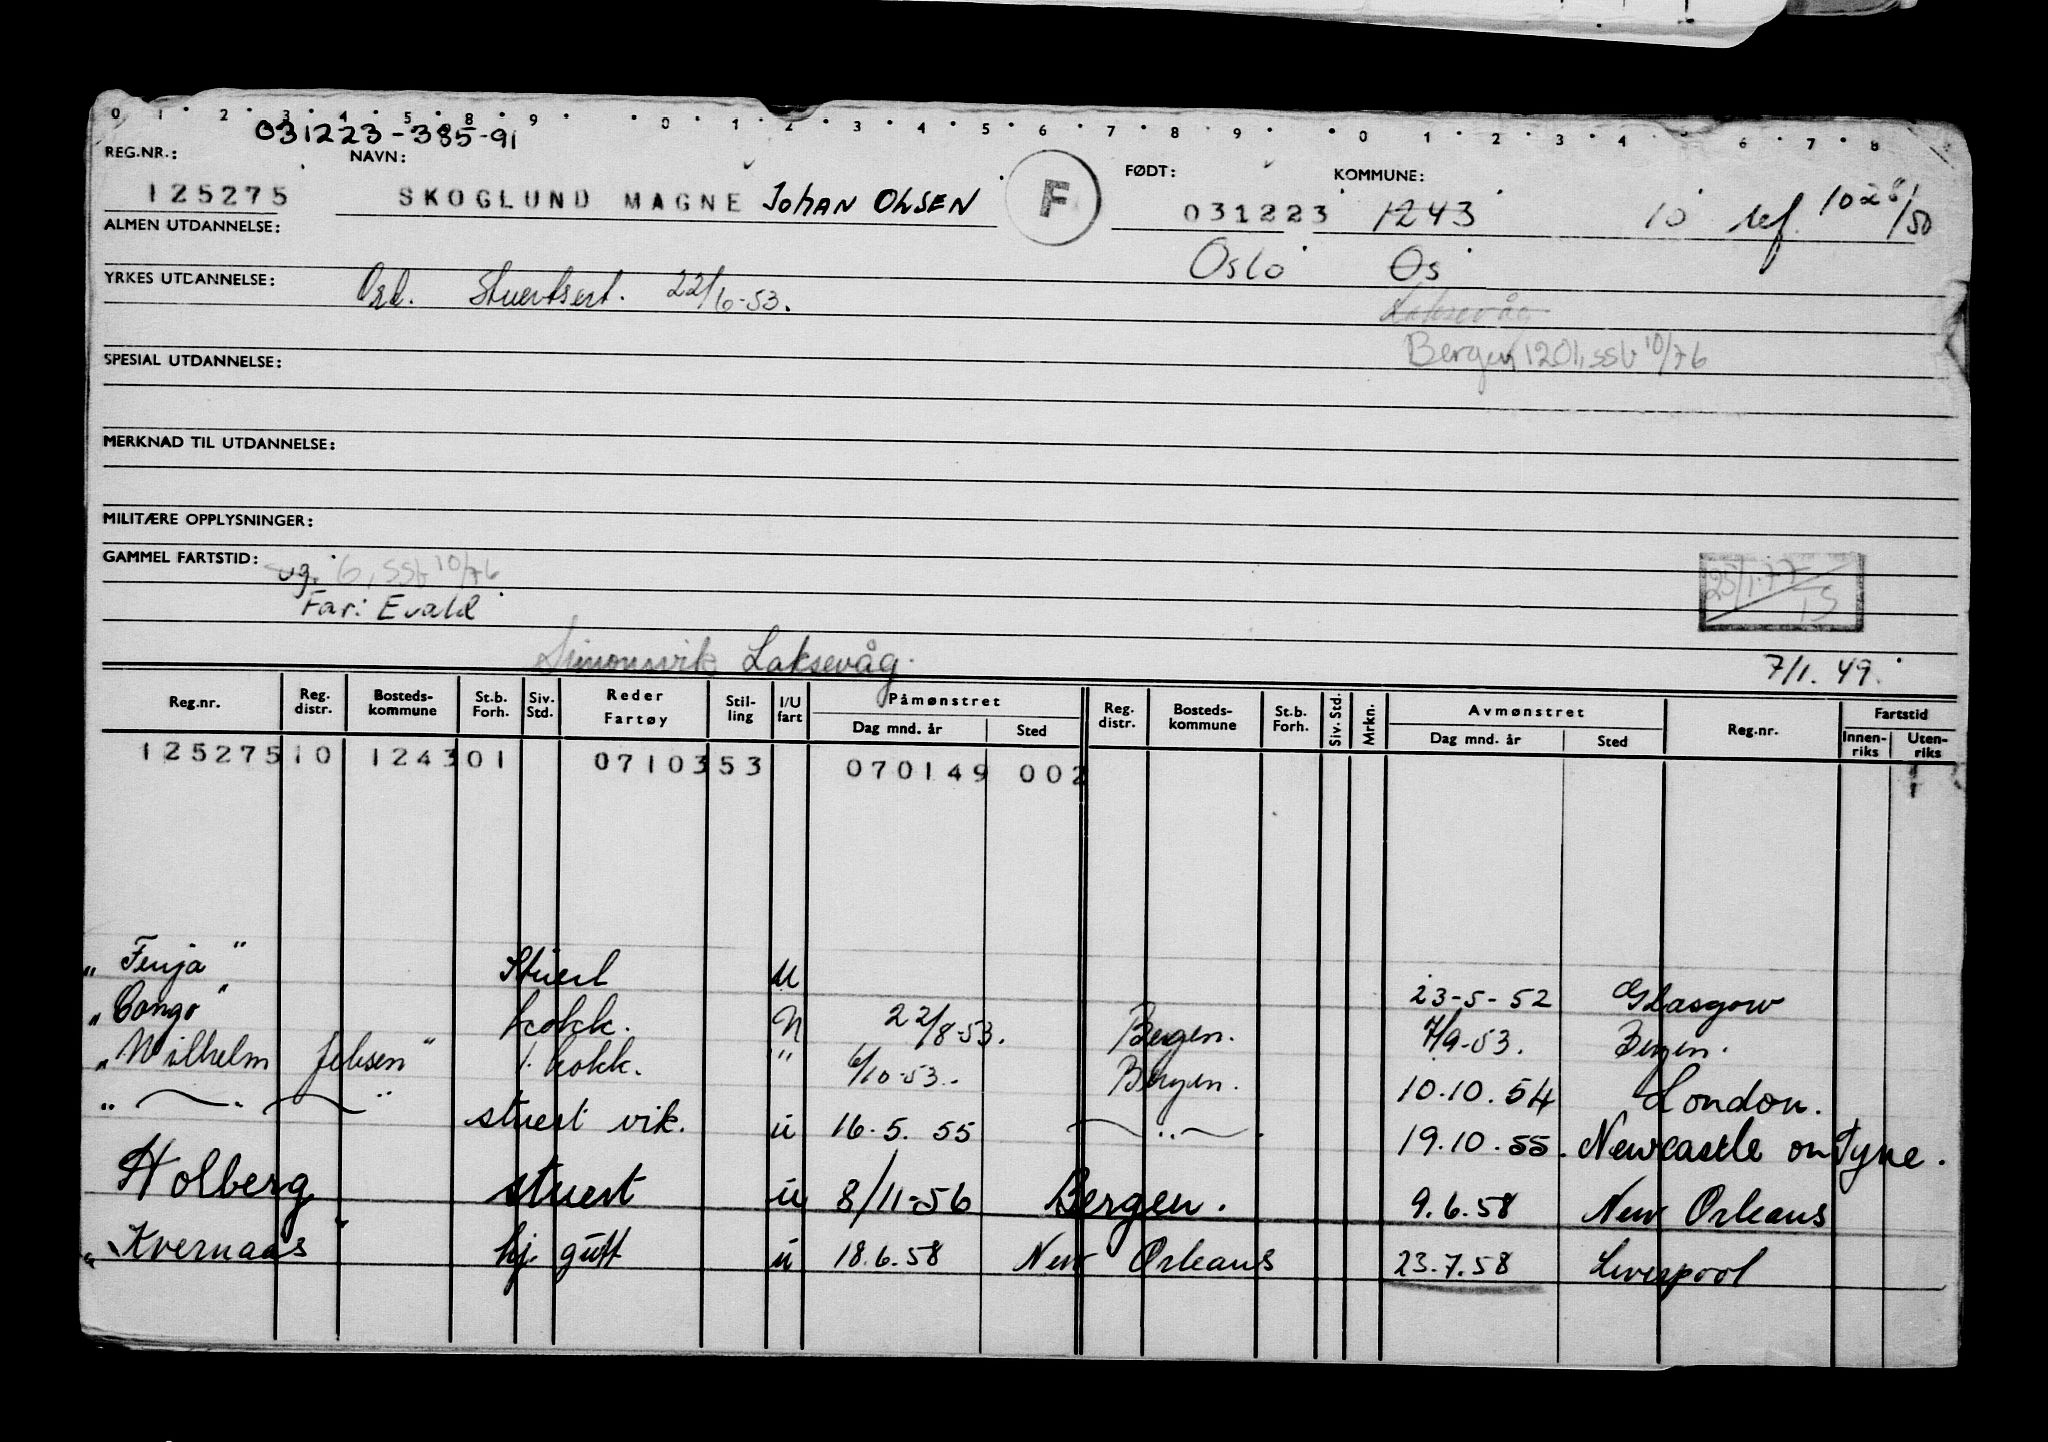 0 1 2 3 4 5 8 9 0 1 2 3 4 5 6 7 8 9 0 1 2 3 4 6 7 8
031223-385-91
REG.NR.: NAVN: FØDT: KOMMUNE:
125275 SKOGLUND MAGNE Johan OLSEN F 031223 1243 10 ref. 1028/50
ALMEN UTDANNELSE:
Oslo Os
YRKES UTDANNELSE: Ord. Stuertsert. 22/6-53.
Laksevåg
Bergen 1201, ssb 10/76
SPESIAL UTDANNELSE:
MERKNAD TIL UTDANNELSE:
MILITÆRE OPPLYSNINGER:
GAMMEL FARTSTID:
ug. 6, ssb 10/76
25/1-77 IS
Far: Evald
Simonsvik Laksevåg.
7/1. 49.
Reg.nr. Reg. distr. Bosteds-kommune St.b. Forh. Siv. Std. Reder Fartøy Stil-ling I/U fart Påmønstret Dag mnd. år Sted Reg. distr. Bosteds-kommune St.b. Forh. Siv. Std. Mrkn. Avmønstret Dag mnd. år Sted Reg.nr. Fartstid Innen-riks Uten-riks
125275 10 1243 01 0710353 070149 002
"Fenja" Stuert U 23-5-52 Glasgow
"Congo" kokk. N 22/8-53. Bergen. 7/9-53. Bergen.
"Wilhelm Jebsen" 1. kokk. " 6/10-53. Bergen. 10.10.54 London.
" — " — " stuert vik. u 16.5.55 — " — 19.10.55. Newcastle on Tyne.
Holberg stuert u 8/11-56 Bergen. 9.6.58 New Orleans
"Kvernaas" hj. gutt u 18.6.58 New Orleans 23.7.58 Liverpool